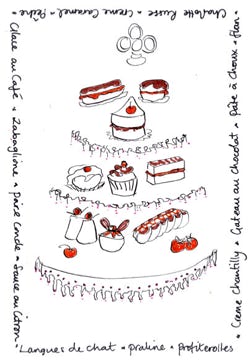 Charlotte Russe * Creme Caramel * Pêche
Glace au Café * Zabaglione * Poire Conde * Sauce au Citron
Langues de chat * praline * profiterolles
Creme Chantilly * Gateau au Chocolat * Pâte à Choux * Flan